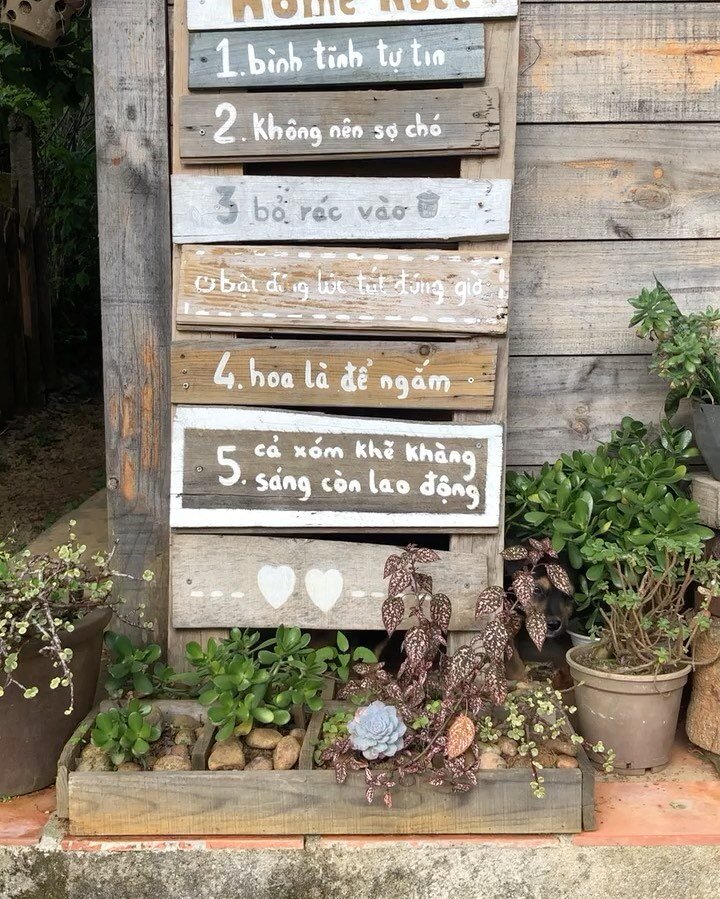 Home Rule
1. bình tĩnh tự tin
2. Không nên sợ chó
3 bỏ rác vào
bật đúng lúc tắt đúng giờ
4. hoa là để ngắm
5. cả xóm khẽ khàng
sáng còn lao động